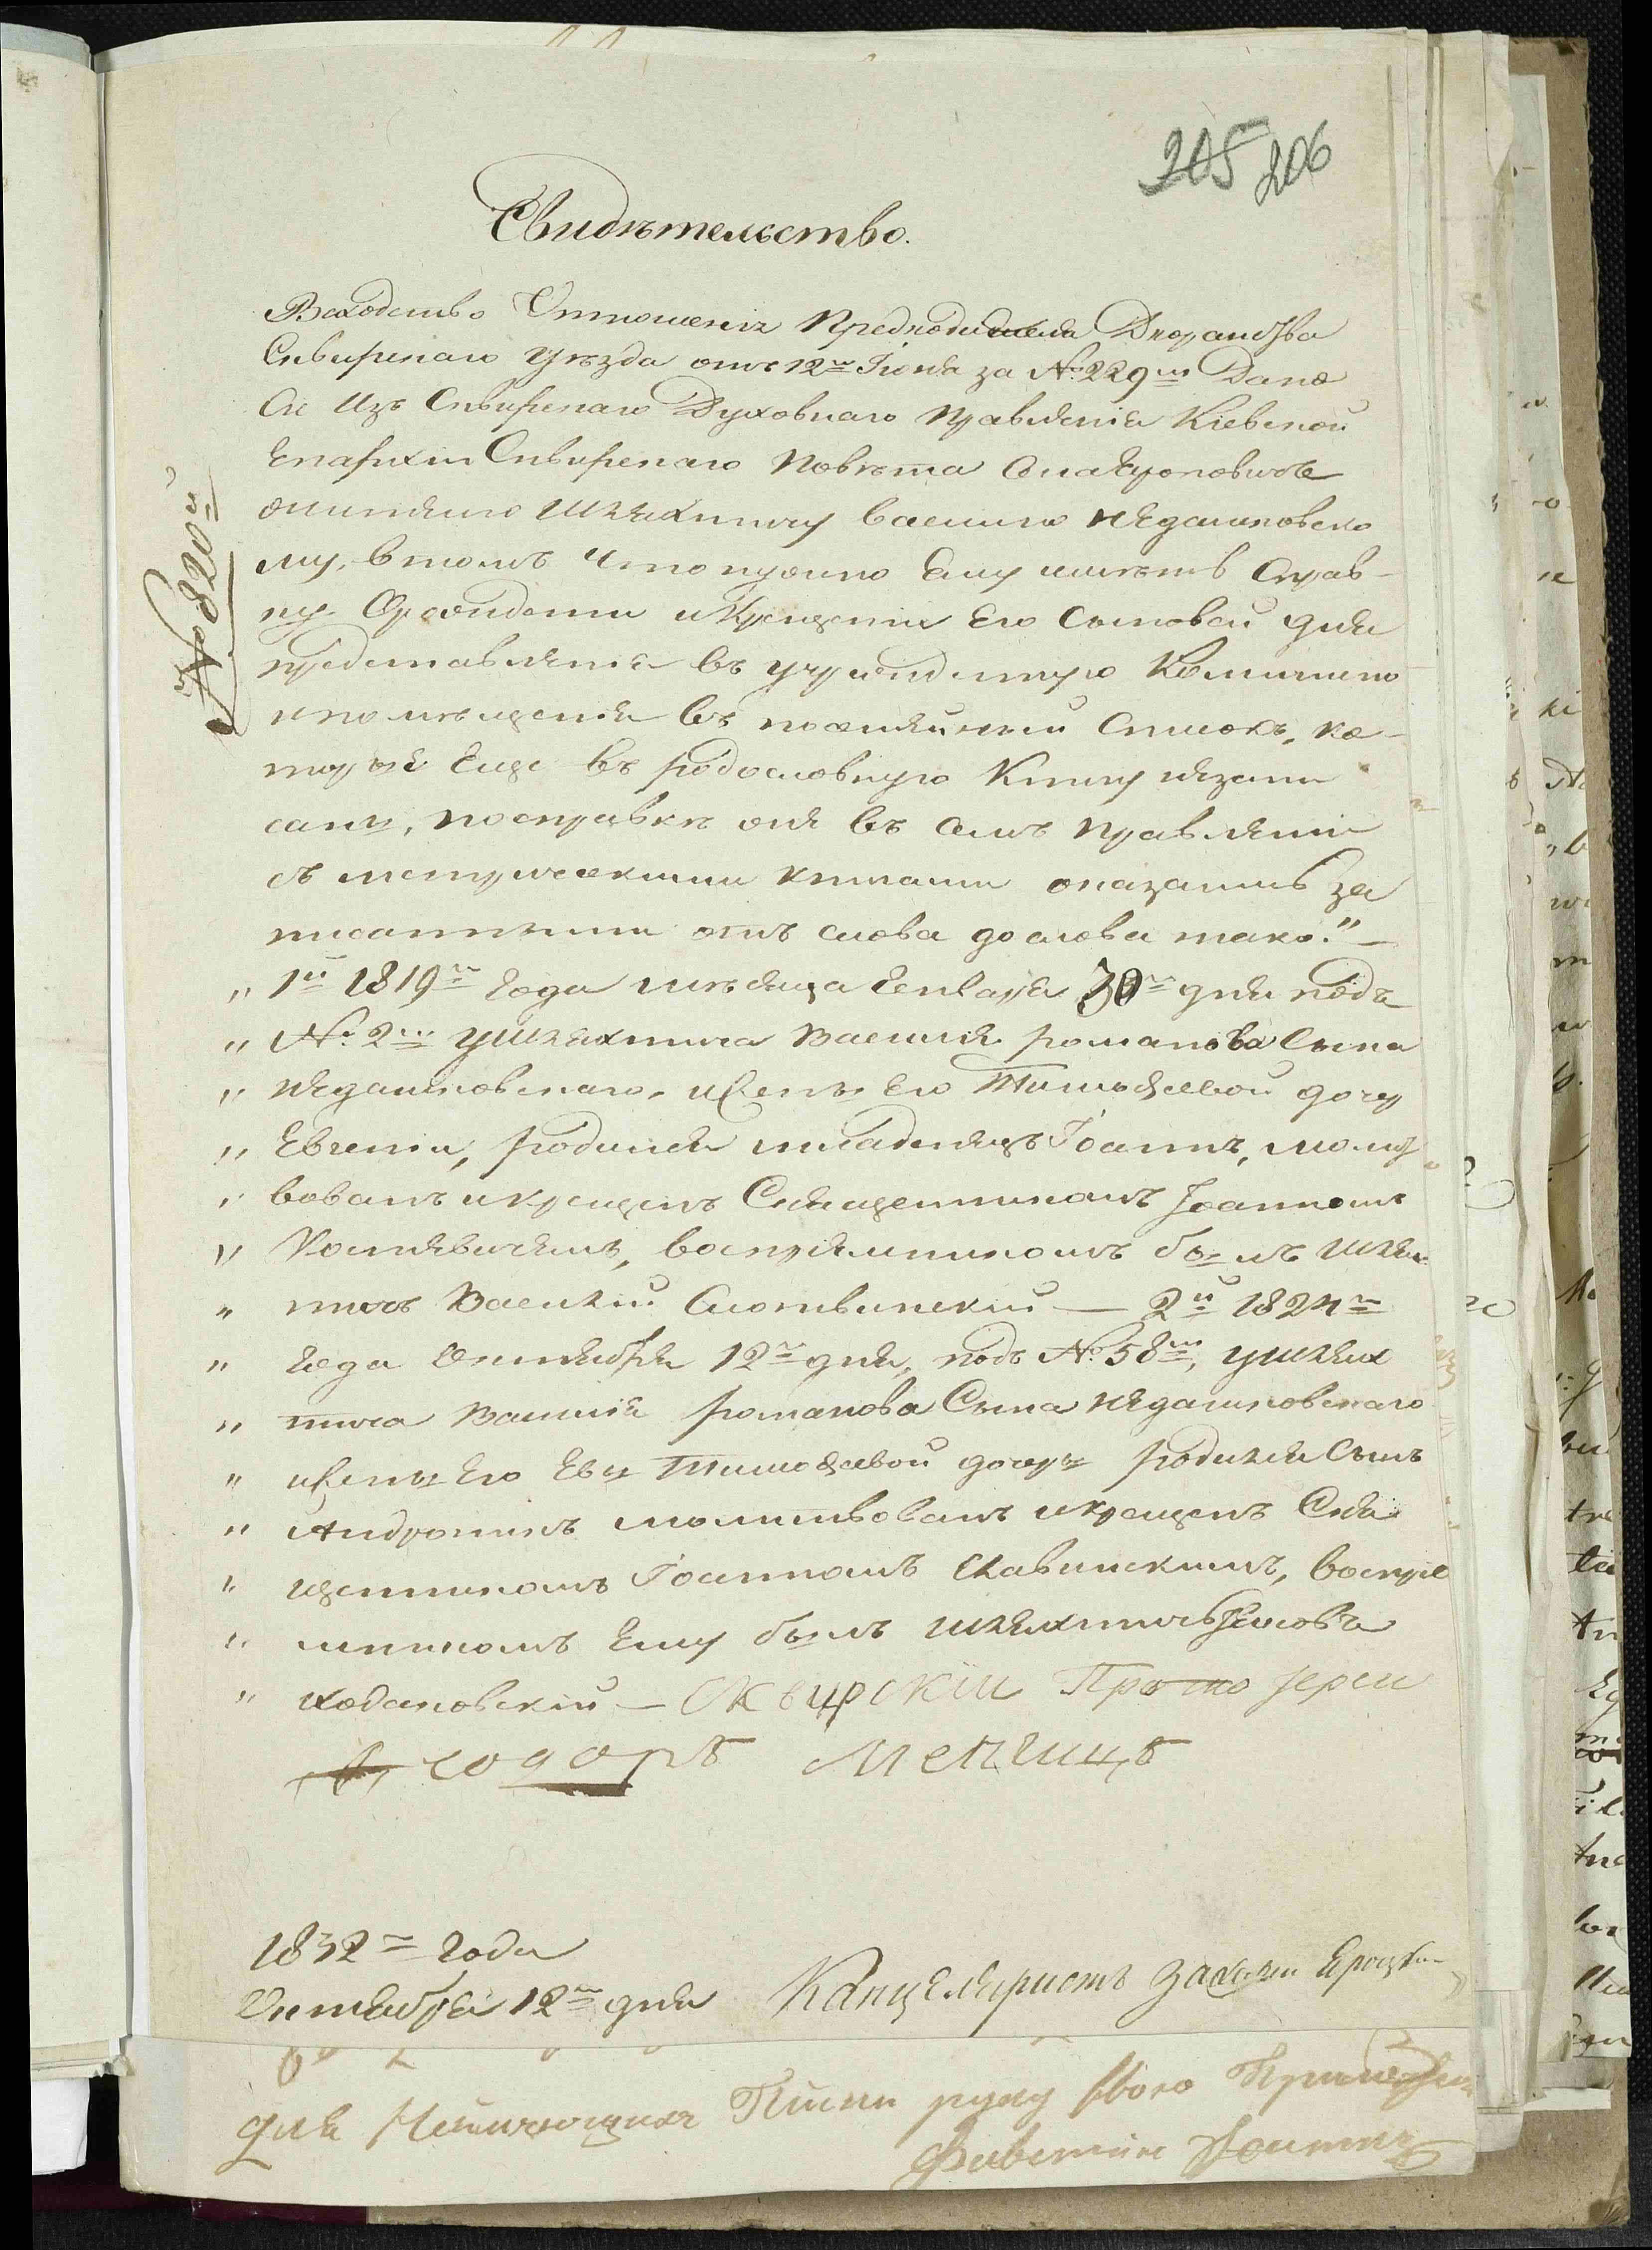 205 206
Свидѣтельство.
№ 820й
Въ сходство Отношенія Предводителя Дворянства
Сквирскаго уѣзда отъ 12го Іюня за № 229м Дано
Сіе Изъ Сквирскаго Духовнаго Правленія Кіевской
Епархіи Сквирскаго Повѣта
Шляхтичу Василію Недашковско
му, в томъ Что нужно Ему имѣть Справ-
ку О рожденіи и Крещеніи Его Сыновей для
представленія въ учрежденную Комиссію
и помѣщенія въ посемейный Списокъ, ко-
торые Еще въ родословную Книгу незапи
саны, по справкѣ оня въ Семъ Правленіи
съ метрическими книгами оказались за
писанными отъ слова до слова тако:"
„ 1й 1819го Года мѣсяца Генваря 30го дня подъ
„ № 2м у Шляхтича Василія романова Сына
„ Недашковскаго, и жены Его Тимофеевой дочер
„ Евгеніи, родился младенецъ Іоаннъ, молит
„ вованъ и крещенъ Священникомъ Іоанномъ
„ воспріемникомъ былъ Шлях
„ тичъ Василій Слотвинскій — 2й 1824го
„ Года Октября 12го дня, подъ № 58м, у Шлях
„ тича Василія романова Сына Недашковскаго
„ и жены Его Евы Тимофеевой дочеры родился Сынъ
„ Андроникъ молитвованъ и крещенъ Свя
„ щенникомъ Іоанномъ Славинскимъ, воспріе
„ мникомъ Ему былъ Шляхтичъ Яковъ
„ Ходаковскій — Сквирскій Протоіерей
Ѳеодоръ
1832го Года
Октября 12го дня Канцеляристъ Захарій
для руку свою